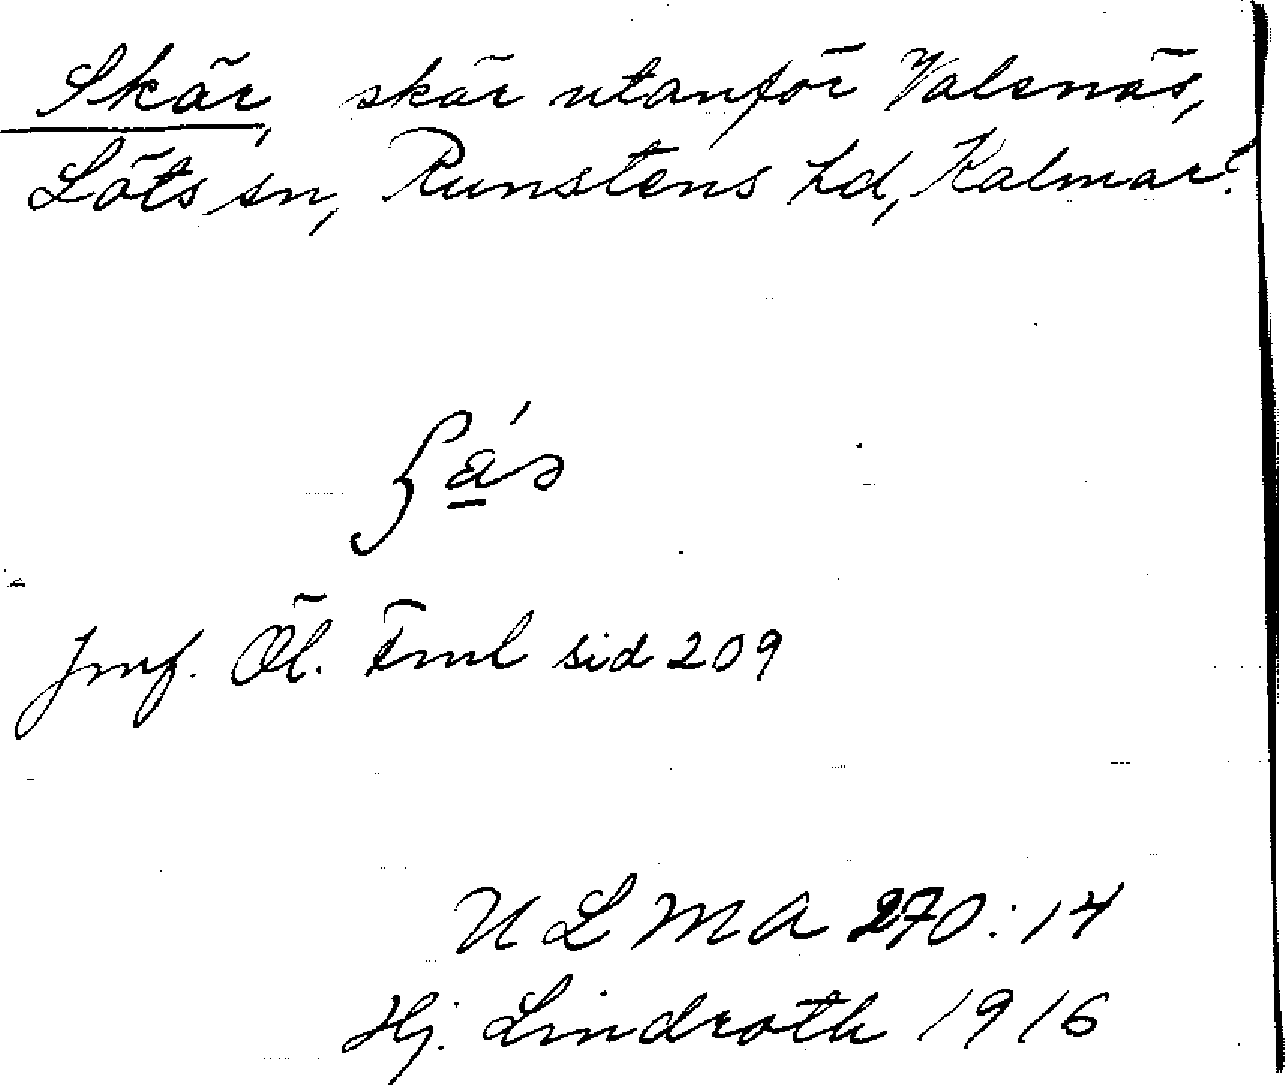 Skär, skär utanför Valsnäs,
Löts sn, Runstens hd, Kalmar l.
Jmf. Öl. Fml sid 209
ULMA 270:14
Hj. Lindroth 1916